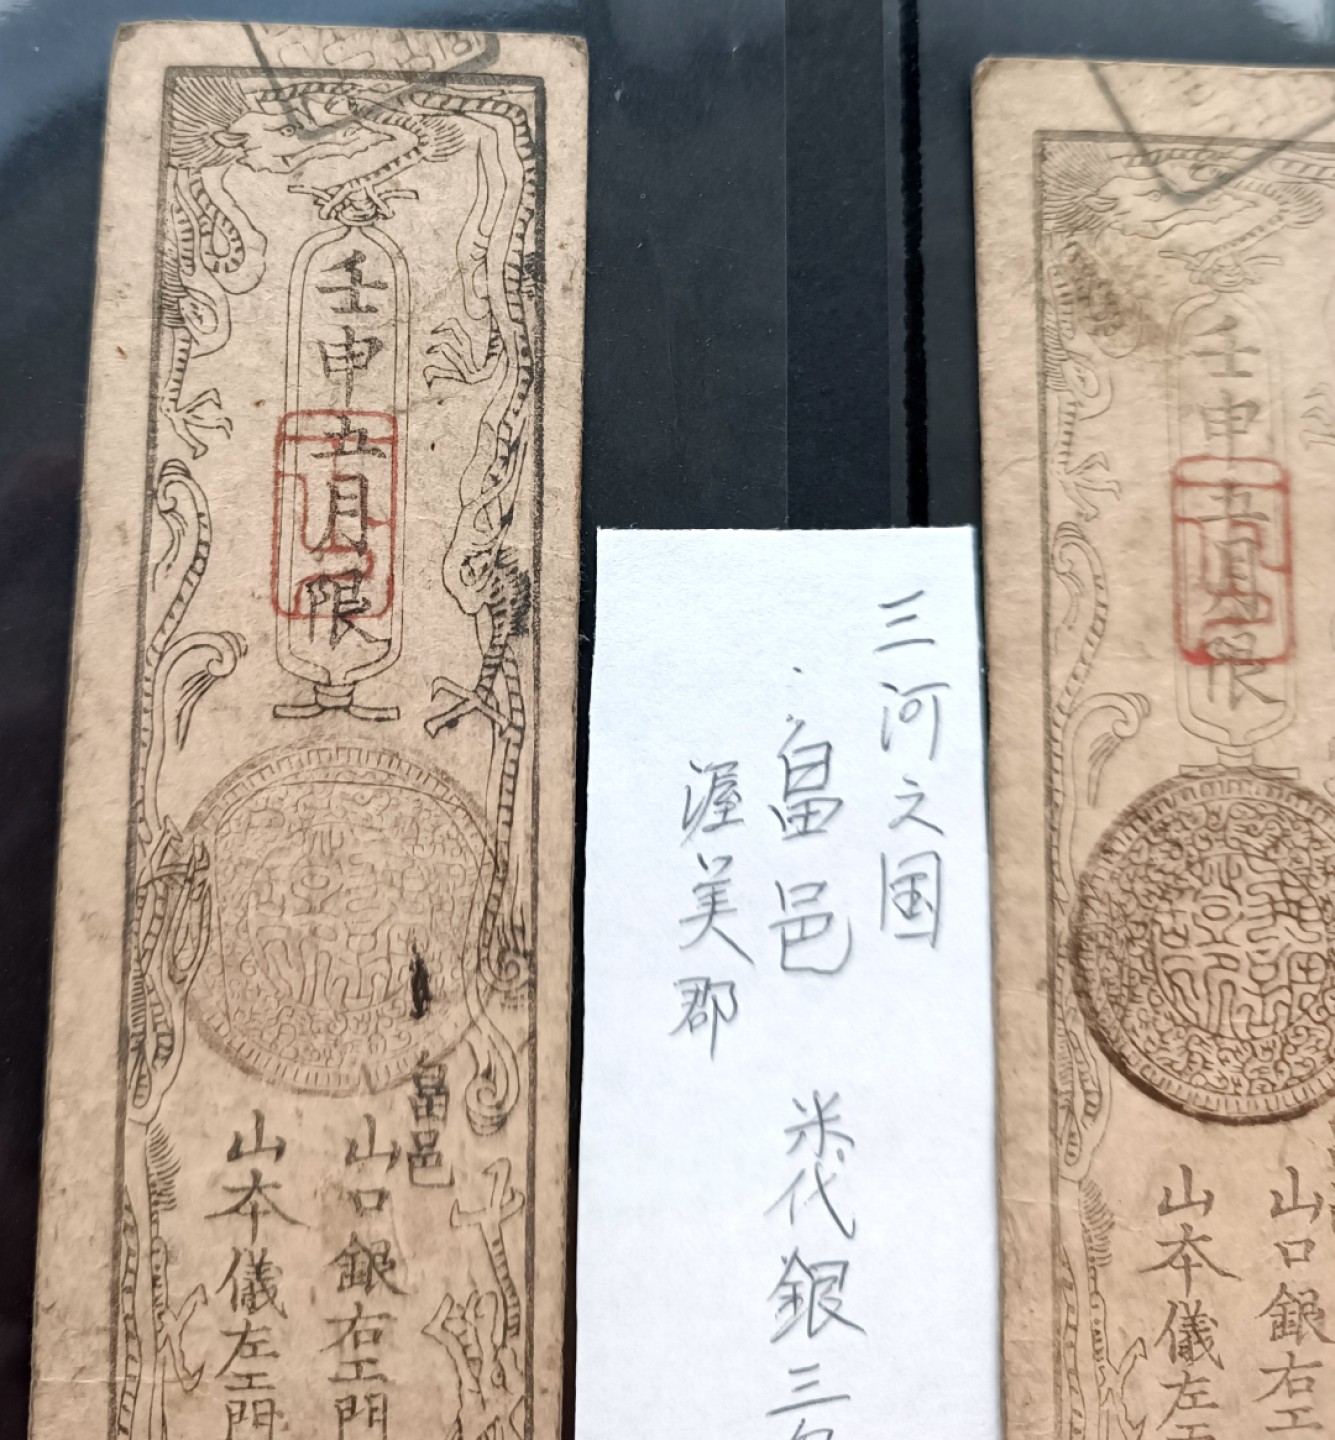 壬申五月限
畠邑
山口銀右エ門
山本儀左エ門
三河之国
畠邑 米代銀三
渥美郡
壬申五月限
山口銀右エ
山本儀左エ